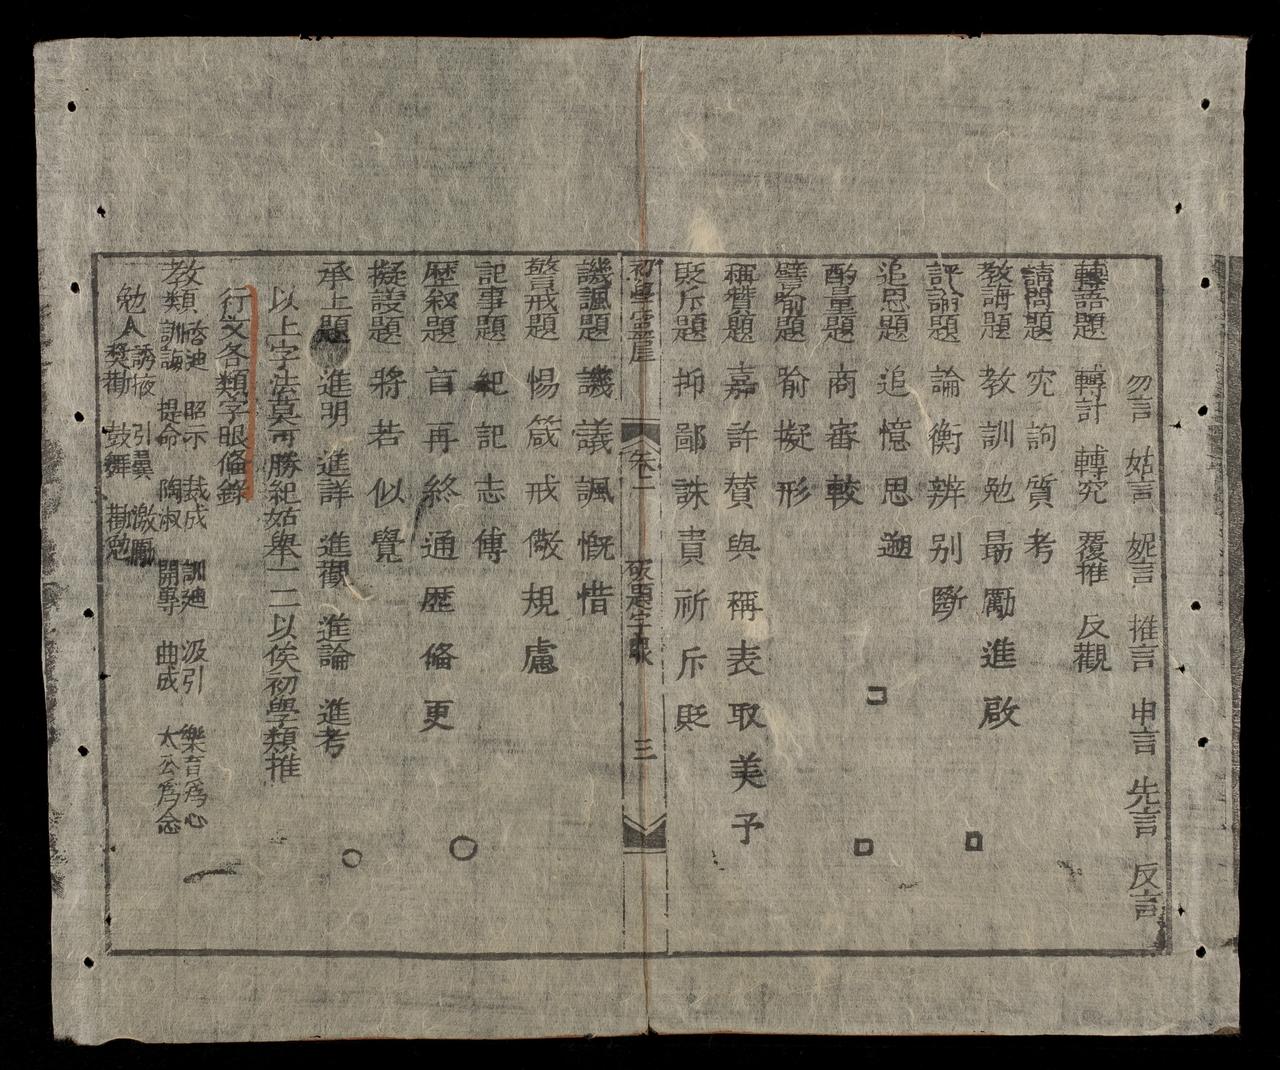 勿言 姑言 妮言 推言 申言 先言 反言
轉語題 轉計 轉究 覆推 反觀
請問題 究詢質考
教誨題 教訓勉勗勵進啟
評論題 論衡辨别斷
追思題 追憶思遡
酌量題 商審較
譬喻題 喻擬形
稱贊題 嘉許贊與稱表取美予
貶斥題 抑鄙誅責祈斥貶
初學靈崖 卷二 破題字眼 三
譏諷題 譏議諷慨惜
警戒題 惕箴戒儆規慮
記事題 紀記志傳
歷叙題 首再終通歷俻更
擬議題 將若似覺
承上題 進明 進詳 進觀 進論 進考
以上字法莫可勝紀姑舉一二以俟初學類推
行文各類字眼俻錄
教類 啓迪 昭示 裁成 訓廸 汲引 樂育爲心
訓誨 提命 陶淑 開導 曲成 大公爲念
勉人 誘掖 引翼 激勵
奬勸 鼓舞 勸勉